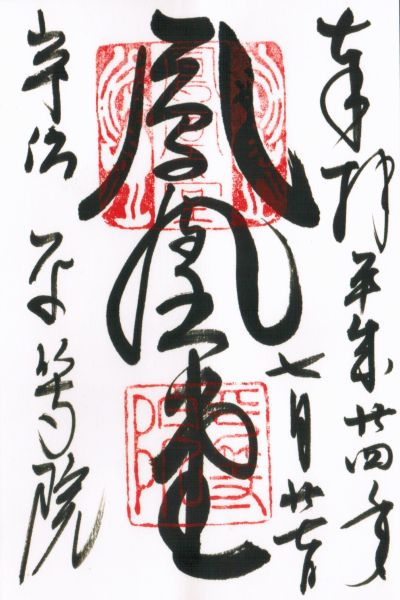 奉拝 平成廿四年
七月廿七日
鳳凰堂
宇治 平等院